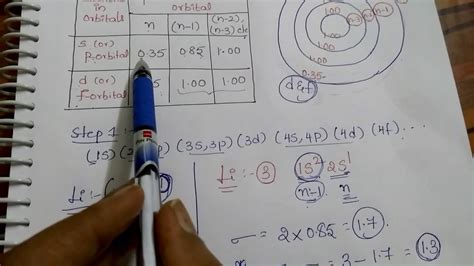 in
orbitals
orbital
n (n-1) (n-2), (n-3) etc
s (or)
p-orbital 0.35 0.85 1.00
d (or)
f-orbital 1.00 1.00
1.00
1.00
1.00
0.35
n
n-1
d & f
Step 1:-
(1S) (3S, 3p) (3d) (4S, 4p) (4d) (4f) ...
Li :-
Li :- 3 1S² 2S¹
n-1 n
σ = 2 x 0.85 = 1.7
= 3 - 1.7 = 1.3